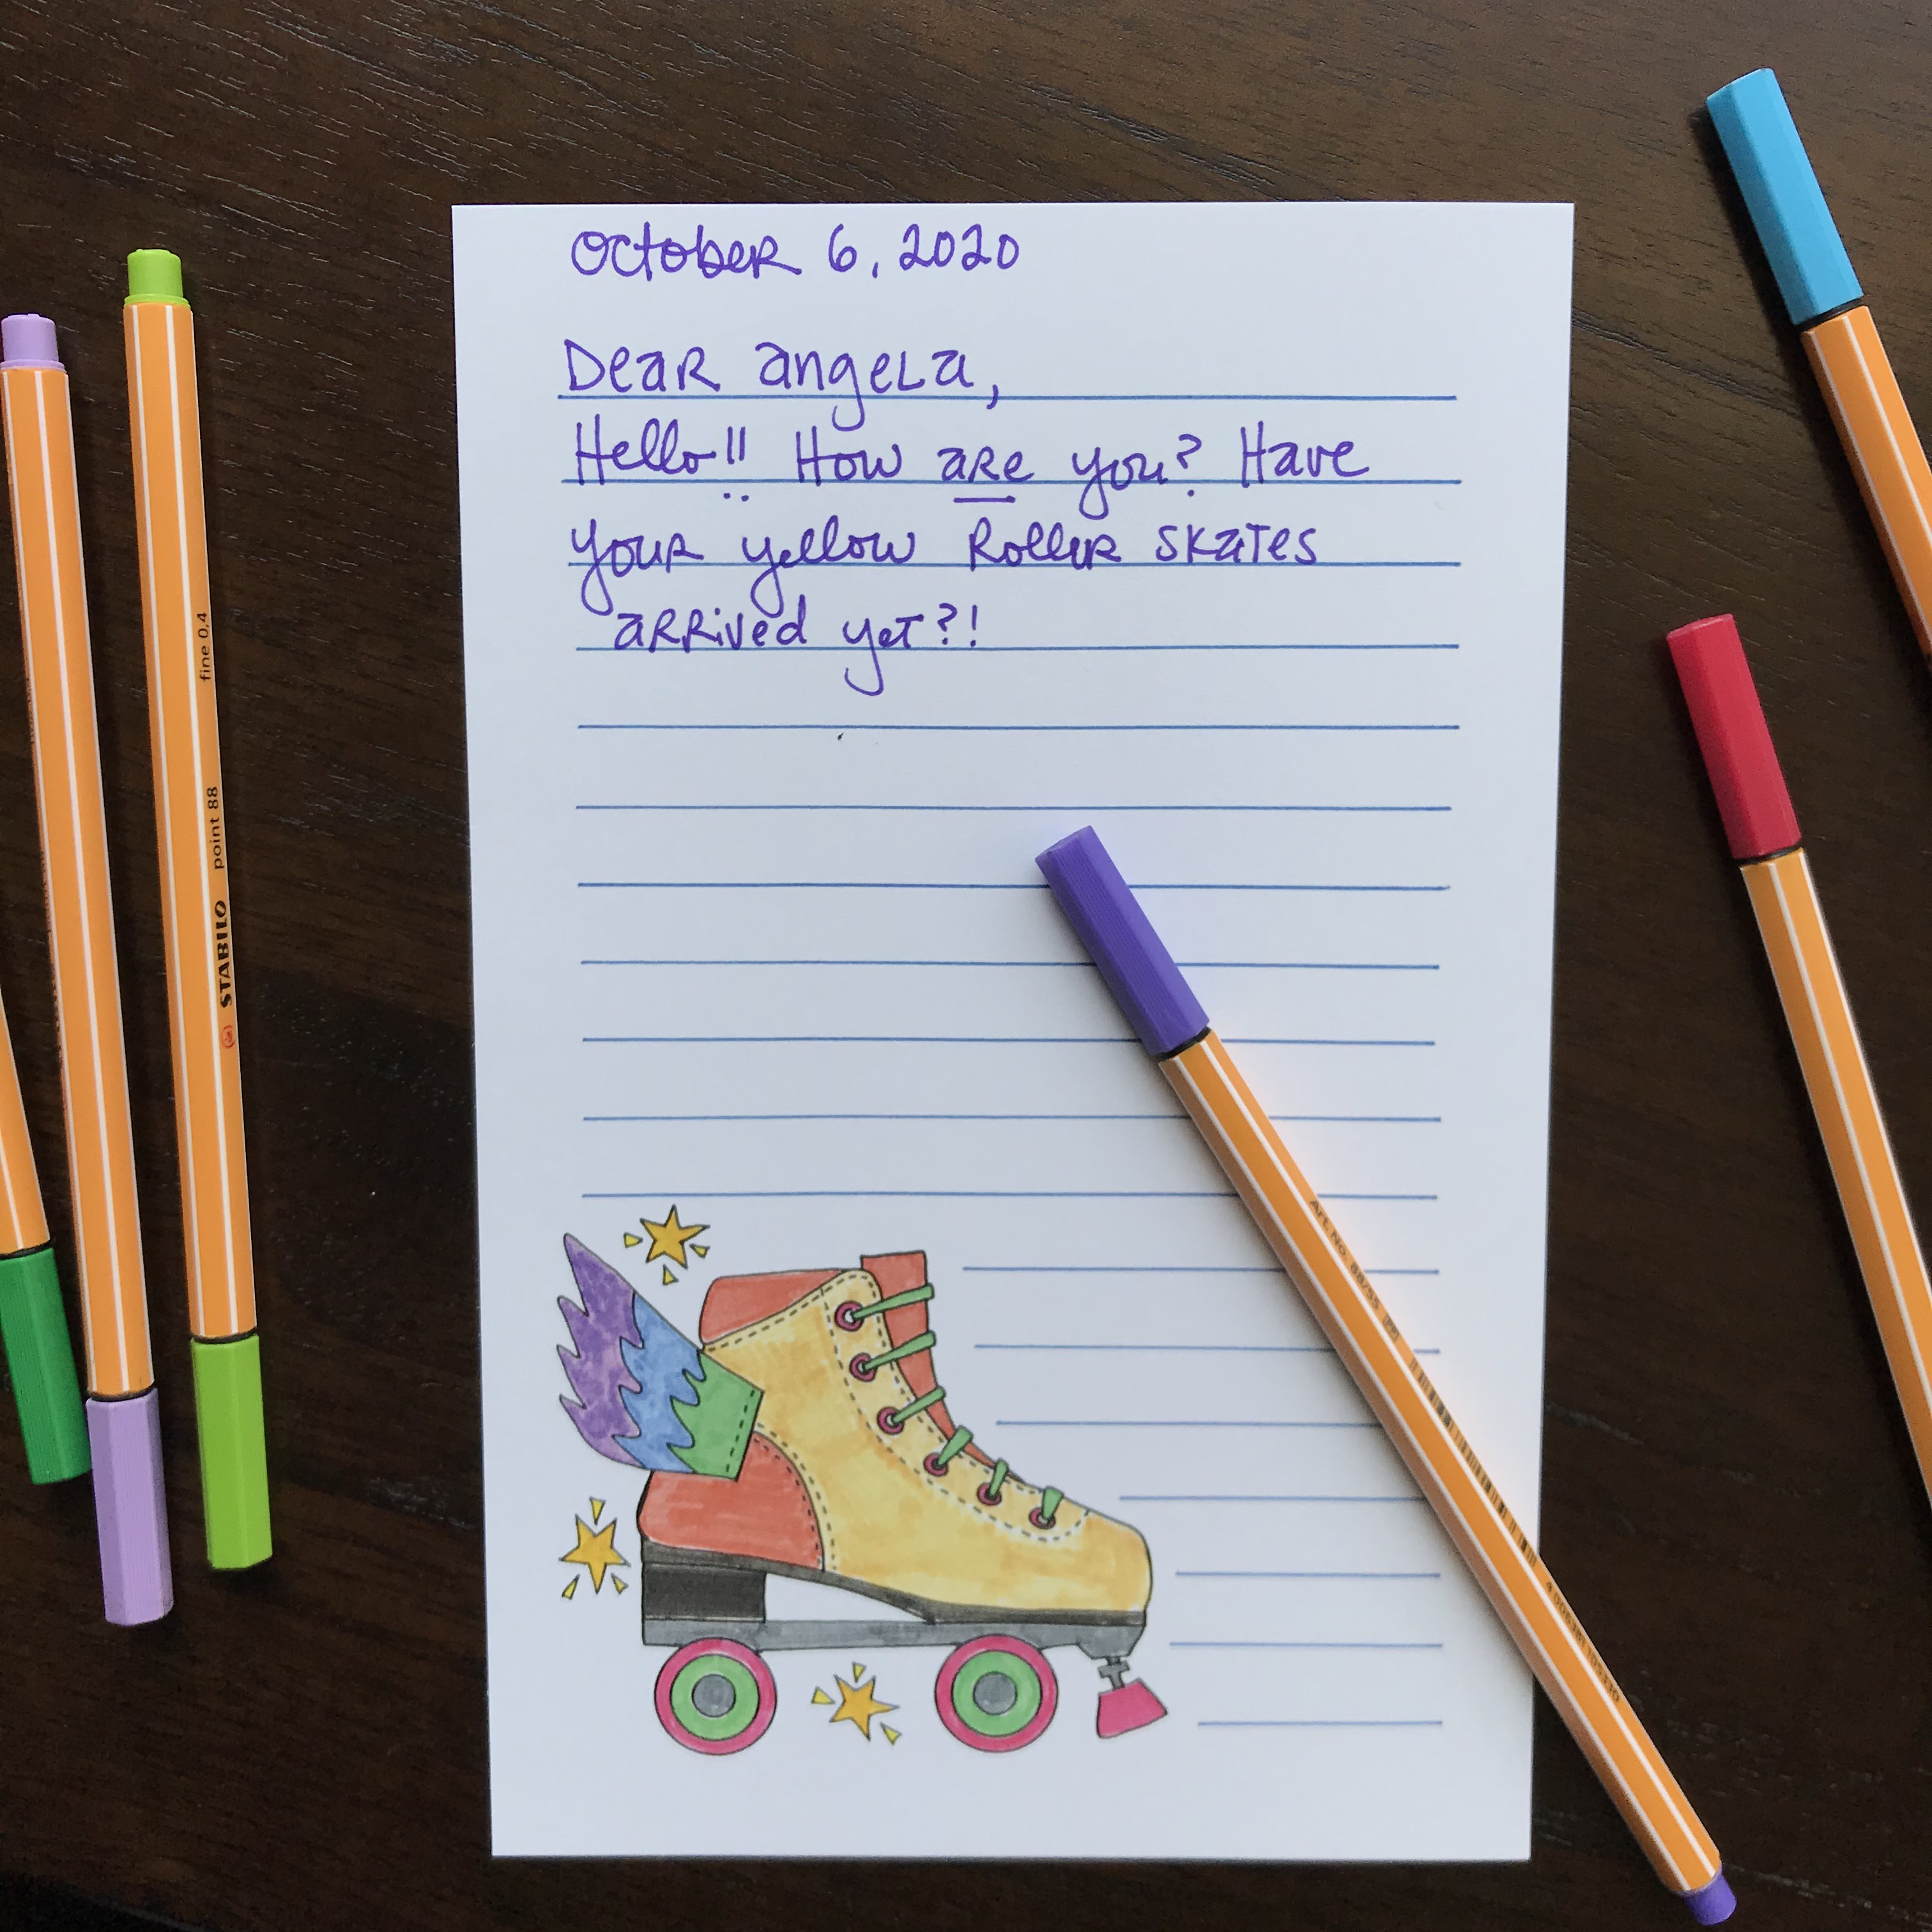 October 6, 2020
Dear angela,
Hello!! How are you? Have
your yellow Roller skates
arrived yet?!
fine 0,4
point 88
STABILO
Art. No. 88/55